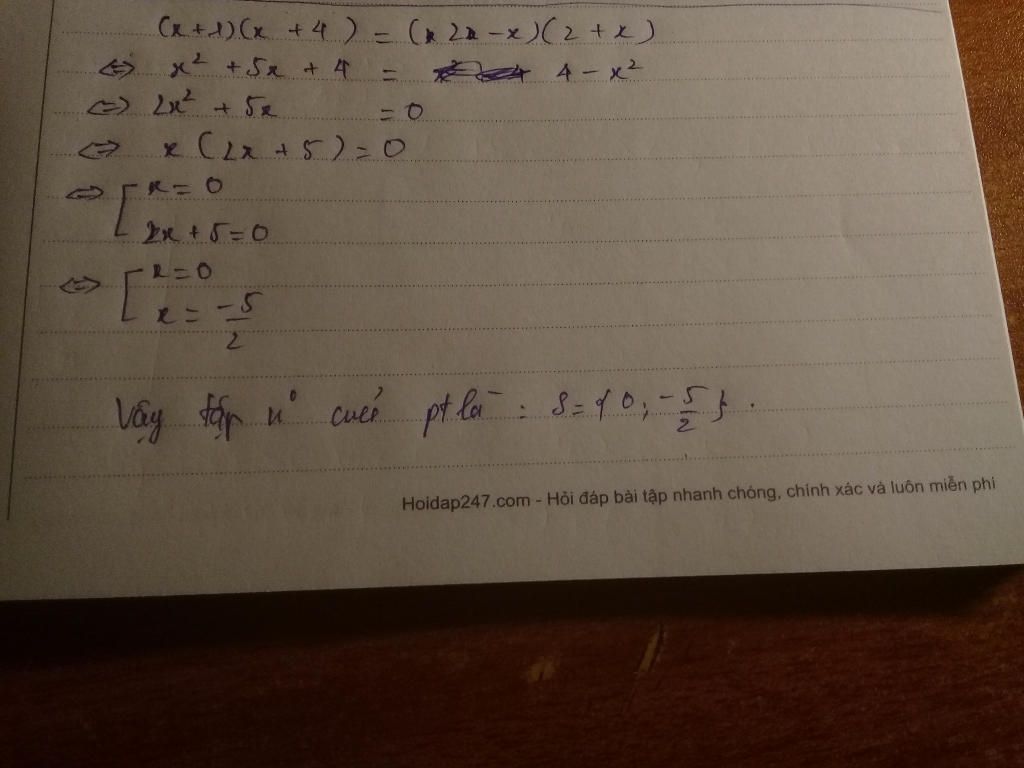 (x+1)(x + 4) = (2 - x)(2 + x)
⇔ x² + 5x + 4 = 4 - x²
⇔ 2x² + 5x = 0
⇔ x (2x + 5) = 0
⇔ [ x = 0
2x + 5 = 0
⇔ [ x = 0
x = -5/2
Vậy tập n° của pt là : S = { 0 ; -5/2 } .
Hoidap247.com - Hỏi đáp bài tập nhanh chóng, chính xác và luôn miễn phí